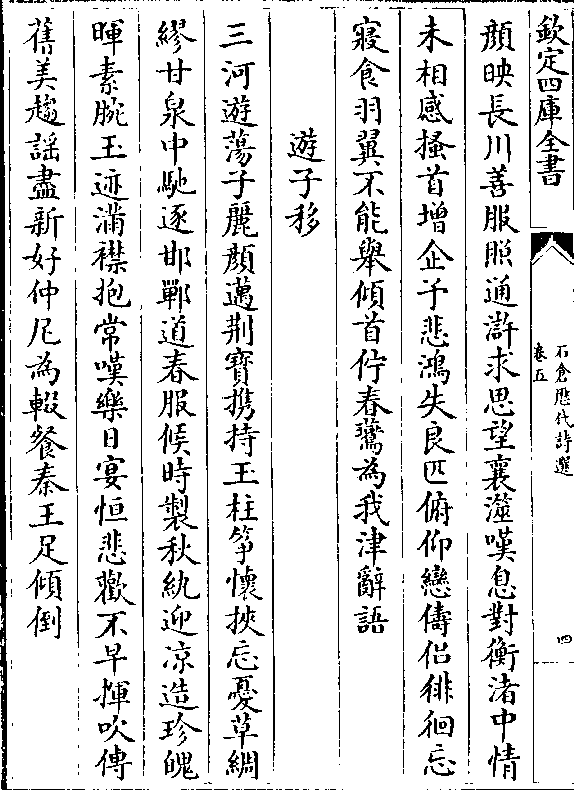 欽定四庫全書
石倉歷代詩選
卷五
四
顔映長川善服照通滸求思望襄澨嘆息對衡渚中情
未相感搔首增企予悲鴻失良匹俯仰戀儔侣徘徊忘
寢食羽翼不能舉傾首佇春鷰為我津辭語
遊子移
三河遊蕩子麗顔邁荆寶携持玉柱箏懷挾忘憂草綢
繆甘泉中馳逐邯鄲道春服候時製秋紈迎凉造珍魄
暉素腕玉迹滿襟抱常嘆樂日宴恒悲歡不早揮吹傳
舊美趨謡盡新好仲尼為輟餐秦王足傾倒